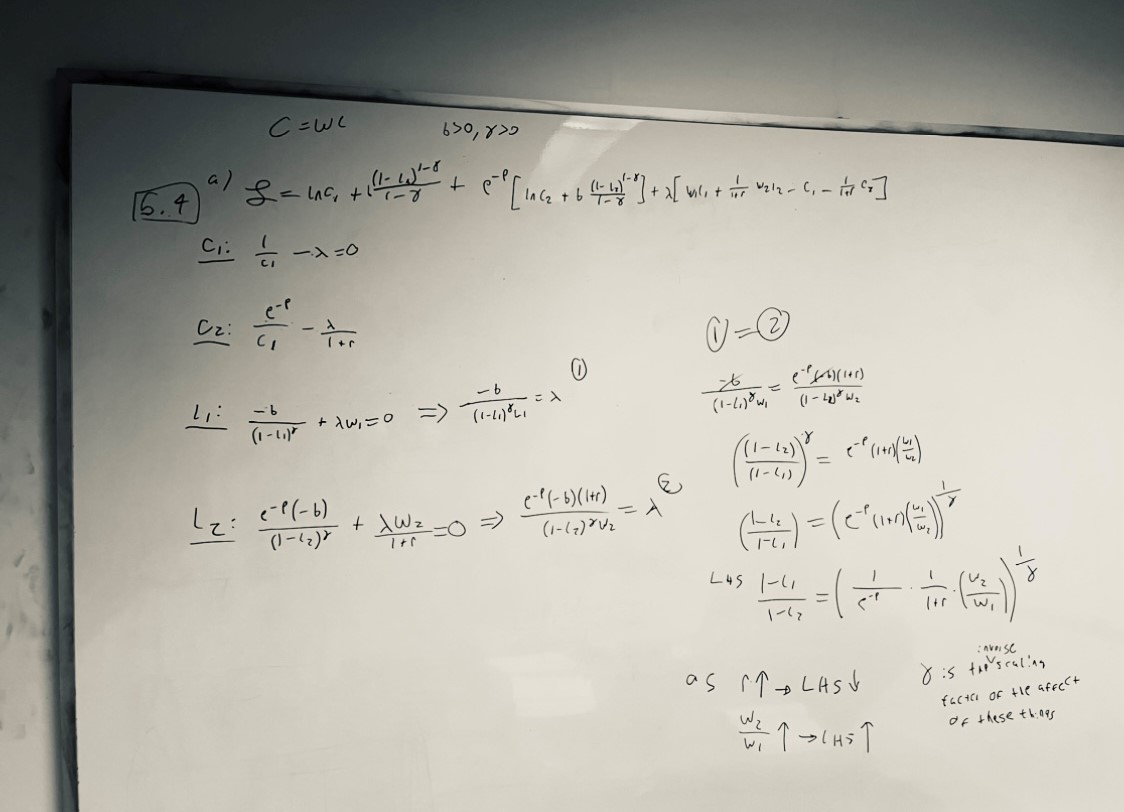 C = wL b>0, γ>0
5.4 a) ℒ = ln c₁ + b (1-L₁)^(1-γ)/(1-γ) + e^(-ρ) [ln c₂ + b (1-L₂)^(1-γ)/(1-γ)] + λ[w₁L₁ + 1/(1+r) w₂L₂ - C₁ - 1/(1+r) C₂]
C₁: 1/C₁ - λ = 0
C₂: e^(-ρ)/C₁ - λ/(1+r)
L₁: -b/(1-L₁)^γ + λw₁ = 0 ⇒ -b/((1-L₁)^γ L₁) = λ ①
L₂: e^(-ρ)(-b)/(1-L₂)^γ + λw₂/(1+r) = 0 ⇒ e^(-ρ)(-b)(1+r)/((1-L₂)^γ w₂) = λ ②
① = ②
-b/((1-L₁)^γ w₁) = e^(-ρ)(-b)(1+r)/((1-L₂)^γ w₂)
((1-L₂)/(1-L₁))^γ = e^(-ρ)(1+r)(w₁/w₂)
((1-L₂)/(1-L₁)) = (e^(-ρ)(1+r)(w₁/w₂))^(1/γ)
LHS (1-L₁)/(1-L₂) = (1/e^(-ρ) · 1/(1+r) · (w₂/w₁))^(1/γ)
as r↑ → LHS↓
w₂/w₁ ↑ → LHS ↑
γ is the inverse scaling
factor of the affect
of these things